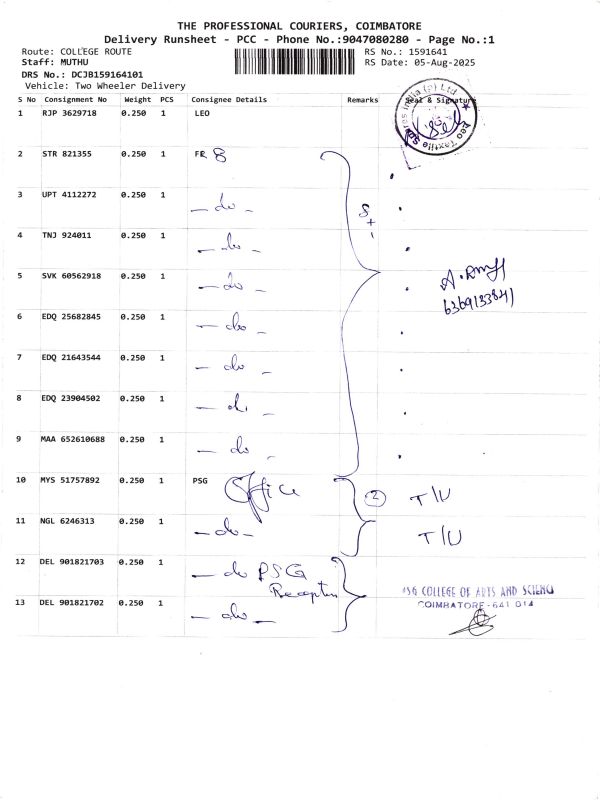 THE PROFESSIONAL COURIERS, COIMBATORE
Delivery Runsheet - PCC - Phone No.:9047080280 - Page No.:1
Route: COLLEGE ROUTE
RS No.: 1591641
Staff: MUTHU
RS Date: 05-Aug-2025
DRS No.: DCJB159164101
Vehicle: Two Wheeler Delivery
S No Consignment No Weight PCS Consignee Details Remarks Seal & Signature
1 RJP 3629718 0.250 1 LEO
Leo Textile Spares India (P) Ltd
2 STR 821355 0.250 1 FR 8
3 UPT 4112272 0.250 1 - do -
4 TNJ 924011 0.250 1 - do -
5 SVK 60562918 0.250 1 - do -
6369133841
6 EDQ 25682845 0.250 1 - do -
7 EDQ 21643544 0.250 1 - do -
8 EDQ 23904502 0.250 1 - do -
9 MAA 652610688 0.250 1 - do -
10 MYS 51757892 0.250 1 PSG Office 2 T/U
11 NGL 6246313 0.250 1 - do - T/U
12 DEL 901821703 0.250 1 - do PSG
Reception
PSG COLLEGE OF ARTS AND SCIENCE
COIMBATORE-641 014
13 DEL 901821702 0.250 1 - do -